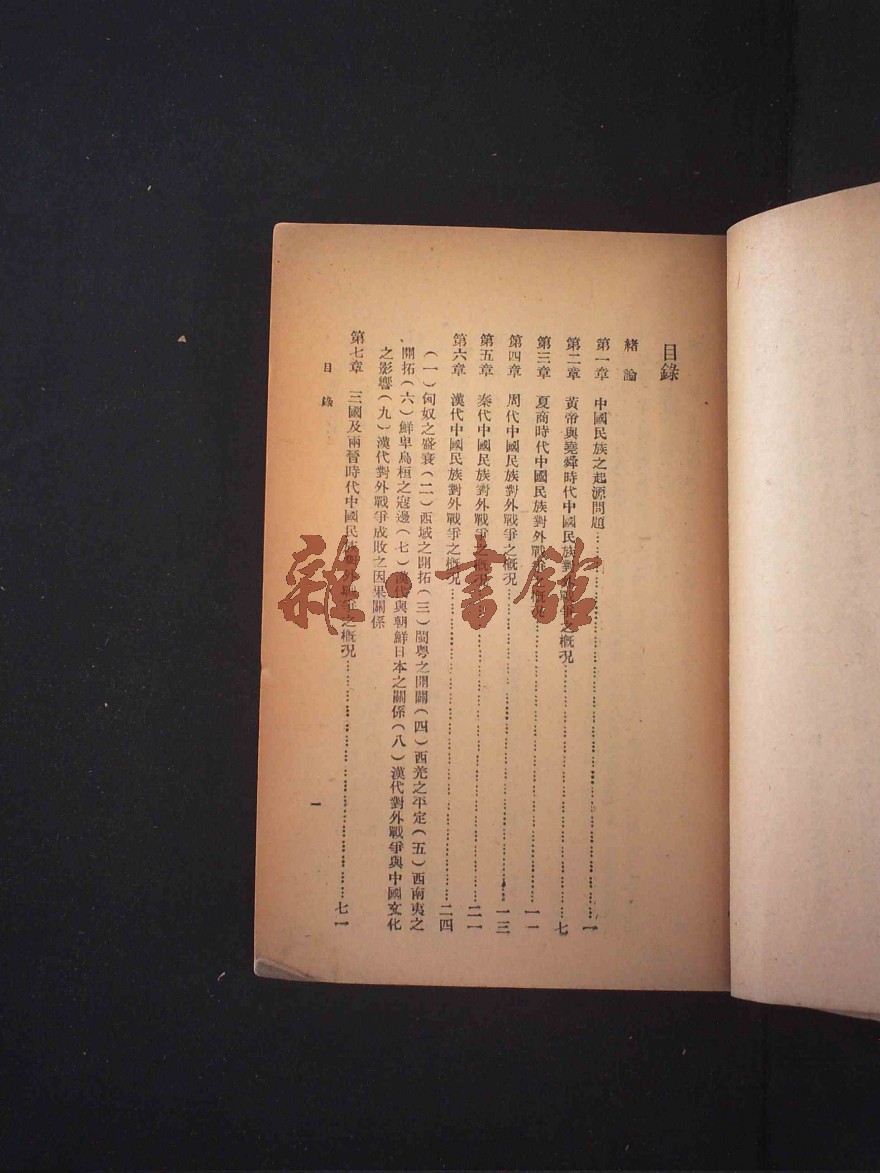 目錄
緒論
第一章 中國民族之起源問題……一
第二章 黃帝與堯舜時代中國民族對外戰爭之概況……七
第三章 夏商時代中國民族對外戰爭之概況……一一
第四章 周代中國民族對外戰爭之概況……一三
第五章 秦代中國民族對外戰爭之概況……二一
第六章 漢代中國民族對外戰爭之概況……二四
(一)匈奴之盛衰(二)西域之開拓(三)閩粵之開闢(四)西羌之平定(五)西南夷之
開拓(六)鮮卑烏桓之寇邊(七)漢代與朝鮮日本之關係(八)漢代對外戰爭與中國文化
之影響(九)漢代對外戰爭成敗之因果關係
第七章 三國及兩晉時代中國民族對外戰爭之概況……七一
目錄
一
雜·書館